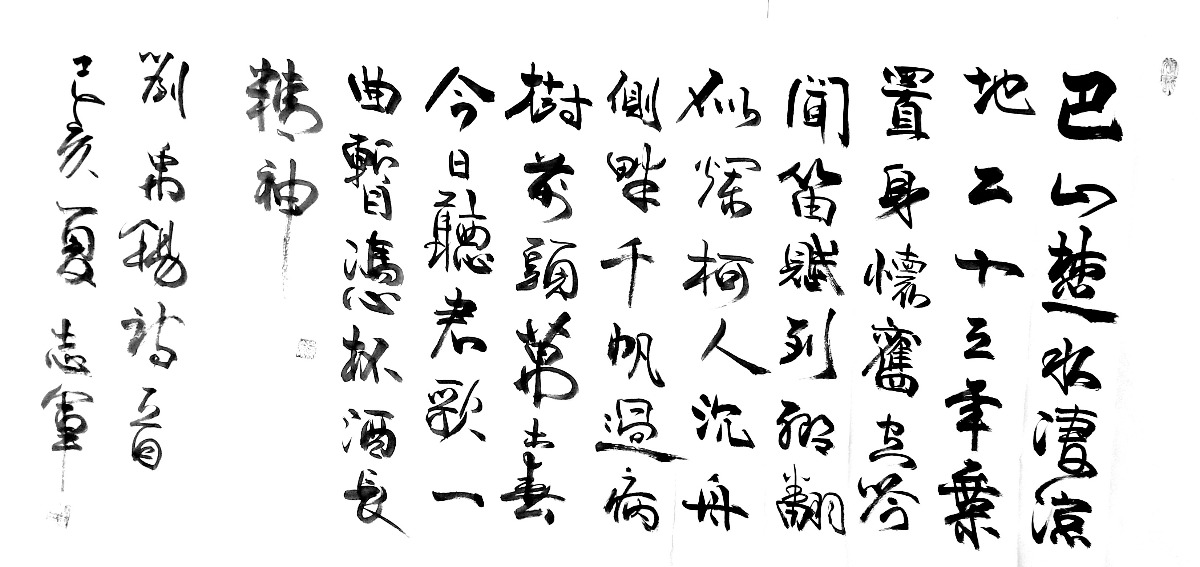 巴山楚水淒涼
地二十三年棄
置身懷舊空吟
聞笛賦到鄉翻
似爛柯人沉舟
側畔千帆過病
樹前頭萬木春
今日聽君歌一
曲暫憑杯酒長
精神
劉禹錫詩一首
己亥夏 志軍